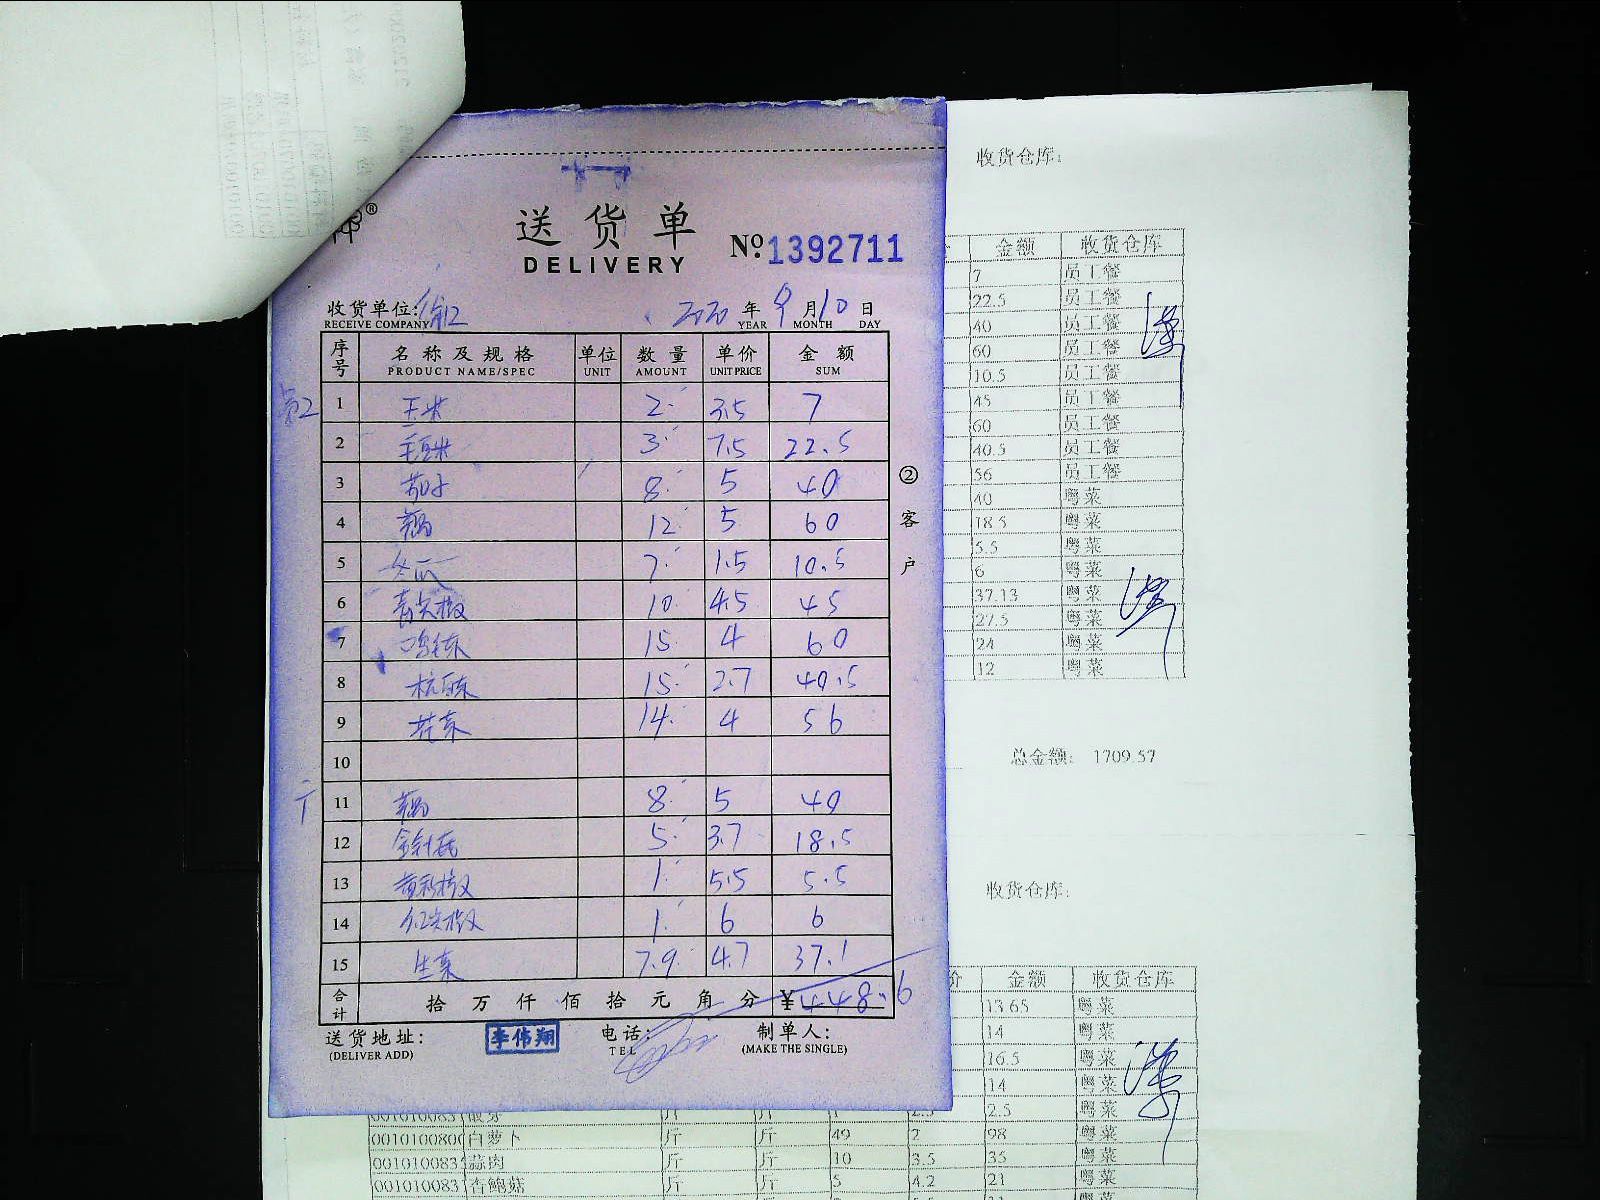 送货单
DELIVERY
No. 1392711
收货单位:
RECEIVE COMPANY
2020 年 9 月 10 日
YEAR MONTH DAY
序号 名称及规格 单位 数量 单价 金额
PRODUCT NAME/SPEC UNIT AMOUNT UNIT PRICE SUM
员工
1 玉米 2 3.5 7
2 毛豆米 3 7.5 22.5
3 茄子 8 5 40
4 12 5 60
5 冬瓜 7 1.5 10.5
6 青尖椒 10 4.5 45
7 15 4 60
8 15 2.7 40.5
9 14 4 56
10
11 8 5 40
12 金针菇 5 3.7 18.5
13 1 5.5 5.5
14 红尖椒 1 6 6
15 生菜 7.9 4.7 37.1
合计 拾 万 仟 佰 拾 元 角 分 ¥448.6
送货地址:
(DELIVER ADD)
李伟翔
电话:
TEL
制单人:
(MAKE THE SINGLE)
②客户
收货仓库:
金额 收货仓库
7 员工餐
22.5 员工餐
40 员工餐
60 员工餐
10.5 员工餐
45 员工餐
60 员工餐
40.5 员工餐
56 员工餐
40 粤菜
18.5 粤菜
5.5 粤菜
6 粤菜
37.13 粤菜
27.5 粤菜
24 粤菜
12 粤菜
总金额: 1709.57
收货仓库:
价 金额 收货仓库
13.65 粤菜
14 粤菜
16.5 粤菜
14 粤菜
2.5 粤菜
001010080 白萝卜 斤 斤 49 2 98 粤菜
001010083 蒜肉 斤 斤 10 3.5 35 粤菜
001010083 杏鲍菇 斤 斤 5 4.2 21 粤菜